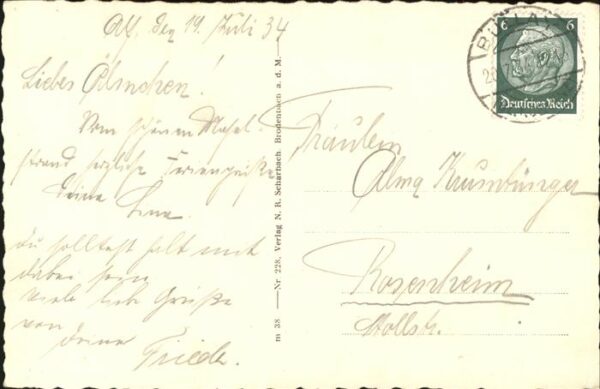 Alf, den 19. Juli 34
Liebes Älmchen!
Vom schönen Mosel-
strand herzliche Feriengrüße
Deine Lena.
Du solltest halt mit
dabei sein
viele liebe Grüße
von
Deiner
Friedel.
m 38 — Nr 228. Verlag N. R. Scharnbach, Brodenbach a. d. M.
6 6
Deutsches Reich
BULLAY
Fräulein
Alma Krumbünger
Rosenheim
Stollstr.